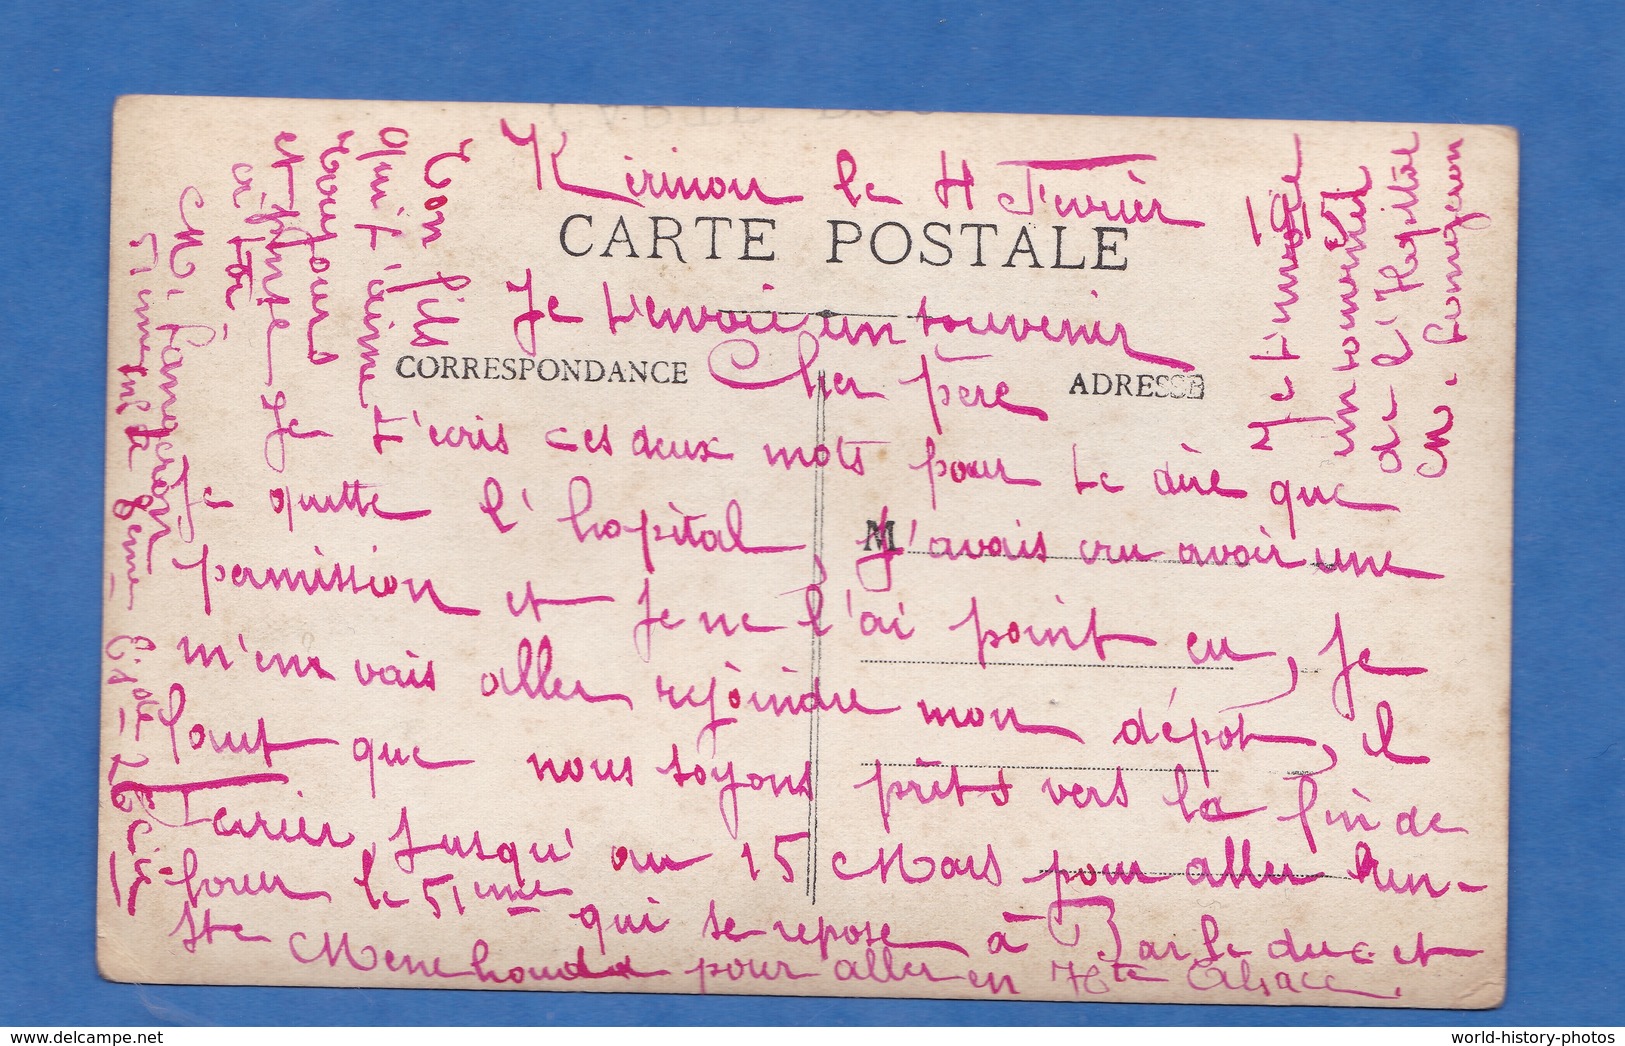 Kerinou le 4 Février
CARTE POSTALE
Je t'envoie un souvenir
CORRESPONDANCE
ADRESSE
Cher père
Je t'écris ces deux mots pour te dire que
Je quitte l'hopital, J'avais cru avoir une
M
permission et Je ne l'ai point eu, Je
m'en vais aller rejoindre mon dépôt, il
faut que nous soyons prêts vers la fin de
Fevrier, Jusqu'au 15 Mars pour aller ren-
forcer le 51ème qui se repose à Bar le duc et
Ste Menehould pour aller en Hte Alsace.
Ton fils
qui t'aime
toujours
et pense
à toi
51ème 8ème 26
Je t'envoie
un
de l'Hopital
M.
world-history-photos